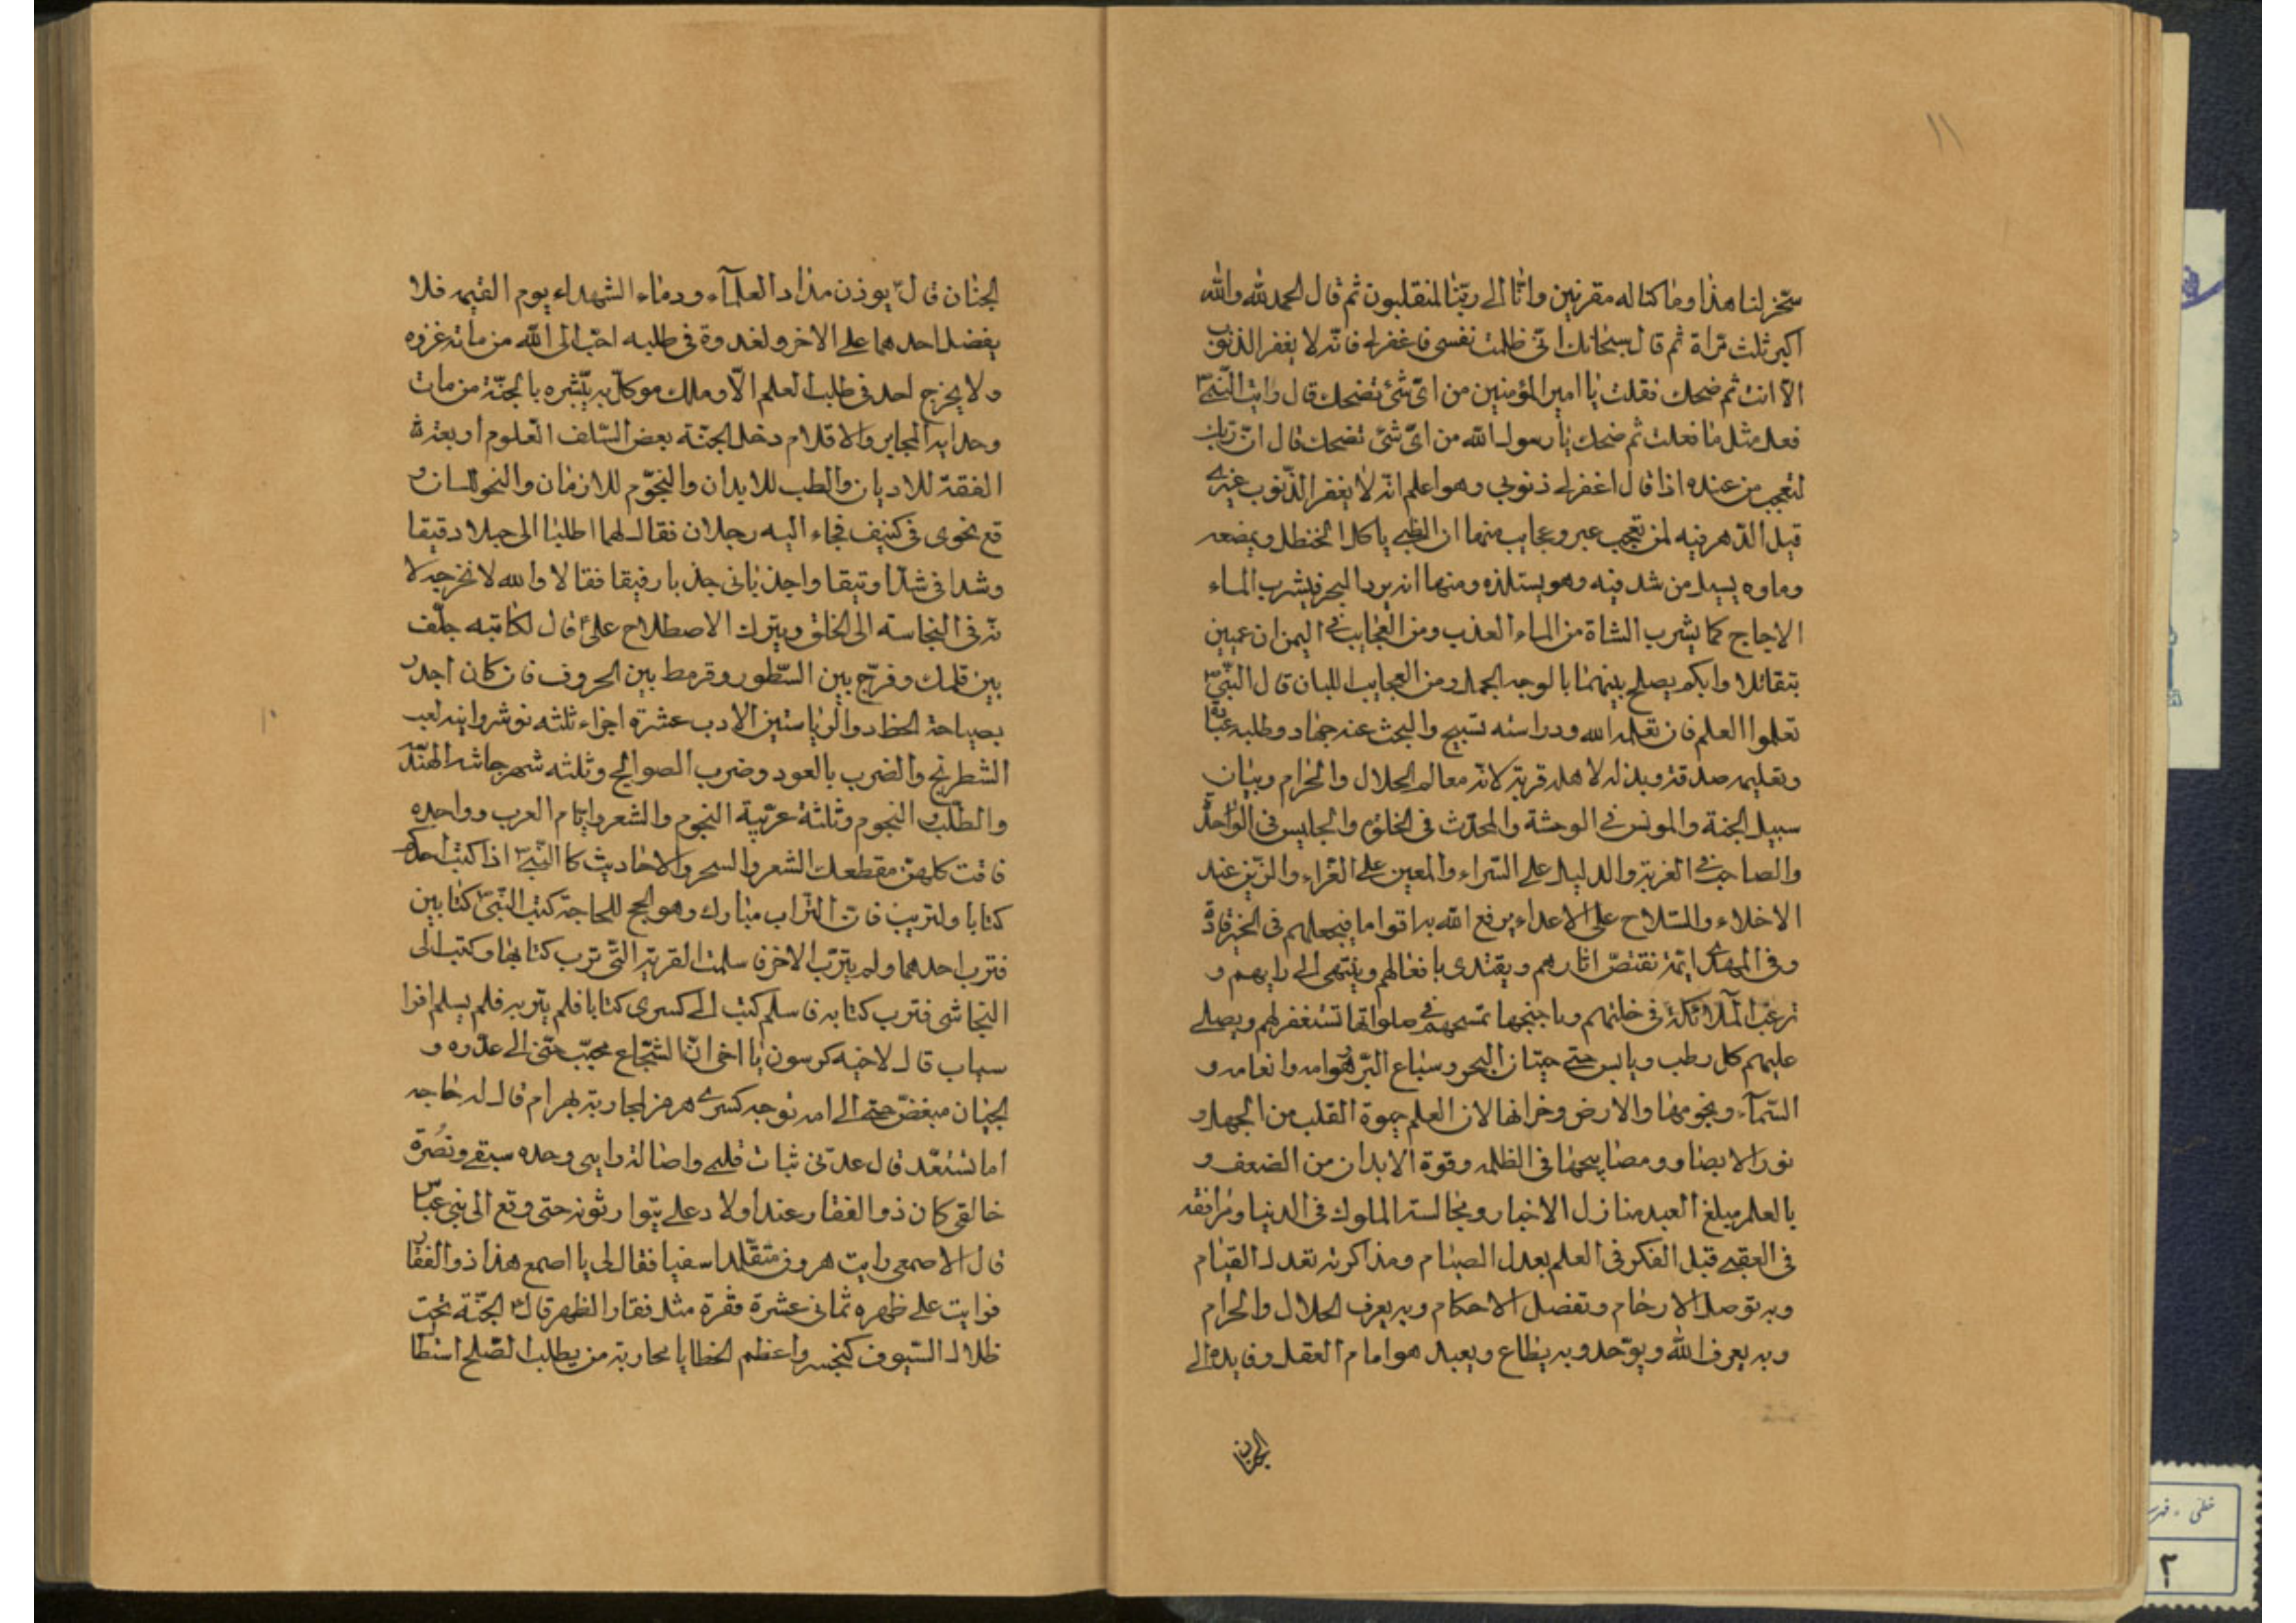 ١١
سخر لنا هذا وما كنا له مقرنين وانا الى ربنا لمنقلبون ثم قال الحمد لله والله
اكبر ثلث مراة ثم قال سبحانك انى ظلمت نفسى فاغفرلى فانه لا يغفر الذنوب
الا انت ثم ضحك فقلت يا امير المؤمنين من اى شئ تضحك قال رايت النبى
فعل مثل ما فعلت ثم ضحك يا رسول الله من اى شئ تضحك قال ان ربك
لتعجب من عبده اذا قال اغفرلى ذنوبى وهو اعلم انه لا يغفر الذنوب غيرى
قيل الدهر فيه لمن تعجب عبر وعجايب منها ان الظبى ياكل الحنظل ويمضغه
وماوه يسيل من شدقيه وهو يستلذه ومنها انه يرد البحر فيشرب الماء
الاجاج كما يشرب الشاة من الماء العذب ومن العجايب فى اليمن ان عميين
بتقاتلا وابكم يصلح بينهما بالوجه الجمل ومن العجايب اللبان قال النبى
تعلموا العلم فان تعلمه لله ودراسته تسبيح والبحث عنه جهاد وطلبه عبادة
وتعليمه صدقة وبذله لاهله قربة لانه معالم الحلال والحرام وبيان
سبيل الجنة والمونس فى الوحشة والمحدث فى الخلوة والجليس فى الواحدة
والصاحب فى الغربة والدليل على السراء والمعين على الضراء والزين عند
الاخلاء والسلاح على الاعداء يرفع الله به اقواما فيجعلهم فى الخير قادة
وفى الهدى ايمة تقتص اثارهم ويقتدى بافعالهم وينتهى الى رايهم و
ترغب الملائكة فى خلتهم وباجنحها تمسحهم فى صلواتها تستغفر لهم ويصلى
عليهم كل رطب ويابس حتى حيتان البحر وسباع البر وهوامه وانعامه و
السماء ونجومها والارض وخزانها لان العلم حيوة القلب من الجهل و
نور الابصار ومصابيحها فى الظلمه وقوة الابدان من الضعف و
بالعلم يبلغ العبد منازل الاخيار ومجالسة الملوك فى الدنيا ومرافقه
فى العقبى قيل الفكر فى العلم يعدل الصيام ومذاكرته تعدل القيام
وبه توصل الارحام وتفصل الاحكام وبه يعرف الحلال والحرام
وبه يعرف الله ويوحد وبه يطاع ويعبد هو امام العقل وقايده الى
الجنان
الجنان قال يوذن مداد العلماء ودماء الشهداء يوم القيمه فلا
يفضل احدهما على الاخر ولغدوة فى طلبه احب الى الله من مائة غزوه
ولا يخرج احد فى طلب العلم الا وملك موكل به يبشره بالجنة من مات
المحابر والاقلام دخل الجنة بعض السلف العلوم اربعة
الفقه للاديان والطب للابدان والنجوم للازمان والنحو للسان و
قع نحوى فى كنيف فجاء اليه رجلان فقال لهما اطلبا الى حبلا دقيقا
وشدانى شدا وثيقا واجذبانى جذبا رفيقا فقالا والله لا نخرجه لا
نه فى النجاسته الى الحلق ويترك الاصطلاح على قال لكاتبه جلف
بين قلمك وفرج بين السطور وقرمط بين الحروف فان كان اجدر
بصباحة الخط ذو الرياستين الادب عشرة اجزاء ثلثه نوشروانيه لعب
الشطرنج والضرب بالعود وضرب الصوالج وثلثه الهندسه
والطب والنجوم وثلثة عربية النجوم والشعر وايام العرب وواحده
فاقت كلهن مقطعات الشعر والسمر والاحاديث كا النبى اذا كتب احدكم
كتابا وليتربه فان التراب مبارك وهو انجح للحاجة كتب النبى كتابين
فترب احدهما ولم يترب الاخر فاسلمت القرية التى ترب كتابها وكتب الى
النجاشى فترب كتابه فاسلم كتب الى كسرى كتابا فلم يتربه فلم يسلم افرا
سياب قال لاخيه كرسون يا اخى ان الشجاع محبب حتى الى عدوه و
الجبان مبغض حتى الى امه توجه كسرى هرمز لمحاربة بهرام قال له حاجه
اما تستعد قال عدتى ثبات قلبى واصالة رايى وحده سيفى ونصرة
خالقى كان ذو الفقار عند اولاد على يتوارثونه حتى وقع الى بنى عباس
قال الاصمعى رايت هرون متقلدا سفيا فقال لى يا اصمع هذا ذو الفقار
فرايت على ظهره ثمانى عشرة فقرة مثل فقار الظهر قال الجنة تحت
ظلال السيوف كيخسرو اعظم الخطايا محاربة من يطلب الصلح
خطى - فهرست
٢